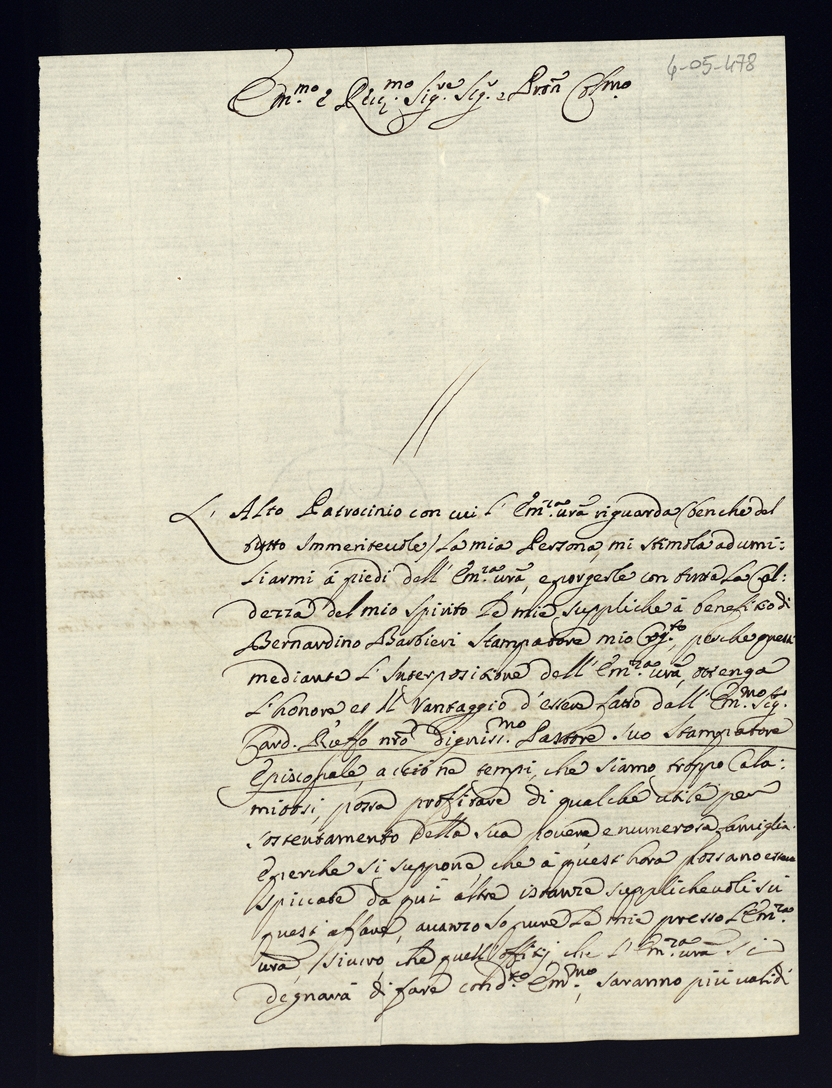 4-05-478
Em.mo e Reu.mo Sig.re Sig.r e Pron Colmo
L' Alto Patrocinio con cui l' Em.za ura riguarda (benche del
tutto Immeriteuole) la mia Persona, mi stimola ad umi:
liarmi à piedi dell' Em.za ura, e porgerle con tutta la Cal:
dezza del mio spirito le mie suppliche à benefitio di
Bernardino Barbieri Stampatore mio Cog.to, perche questi
mediante l' Interpositione dell' Em.za ura, ottenga
l' honore et il Vantaggio d' essere fatto dall' Em.mo Sig.
Card. Ruffo nro digniss.mo Pastore suo Stampatore
Episcopale, acciò ne tempi, che siamo troppo Cala:
mitosi, possa profitare di qualche utile per
sostentamento della sua pouera, e numerosa famiglia.
E perche si suppone, che à quest' hora possano essere
spiccate da qui altre istanze supplicheuoli sù
quest' affare, auanzo Io pure le mie presso l' Em.za
ura, sicuro, che quell' offitij che l' Em.za ura si
degnarà di fare con d.to Em.mo, saranno più ualidi